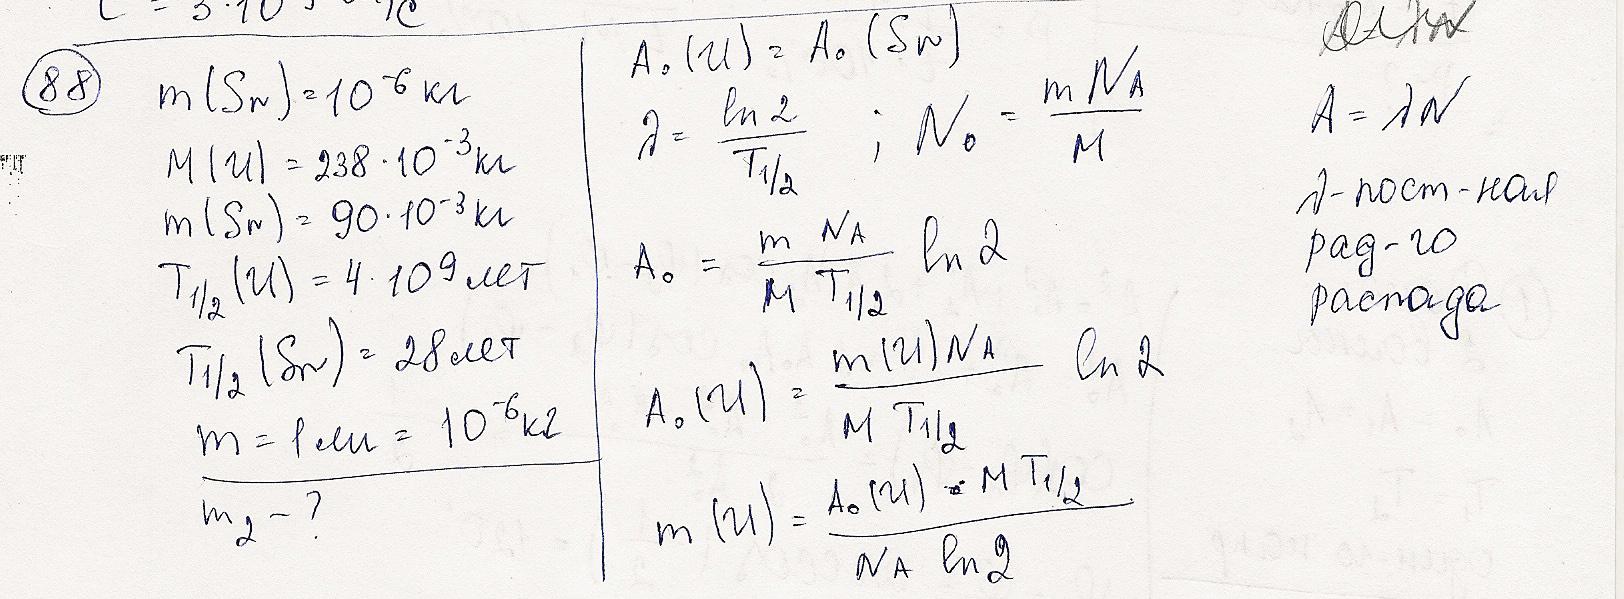 88
m(Sr) = 10⁻⁶ кг
M(U) = 238·10⁻³ кг
m(Sr) = 90·10⁻³ кг
T₁/₂(U) = 4·10⁹ лет
T₁/₂(Sr) = 28 лет
m = 1 мг = 10⁻⁶ кг
m₂ - ?
A₀(U) = A₀(Sr)
λ = ln 2 / T₁/₂ ; N₀ = m N_A / M
A₀ = m N_A / M T₁/₂ ln 2
A₀(U) = m(U) N_A / M T₁/₂ ln 2
m(U) = A₀(U) · M T₁/₂ / N_A ln 2
A = λN
λ-пост-ная
рад-го
распада